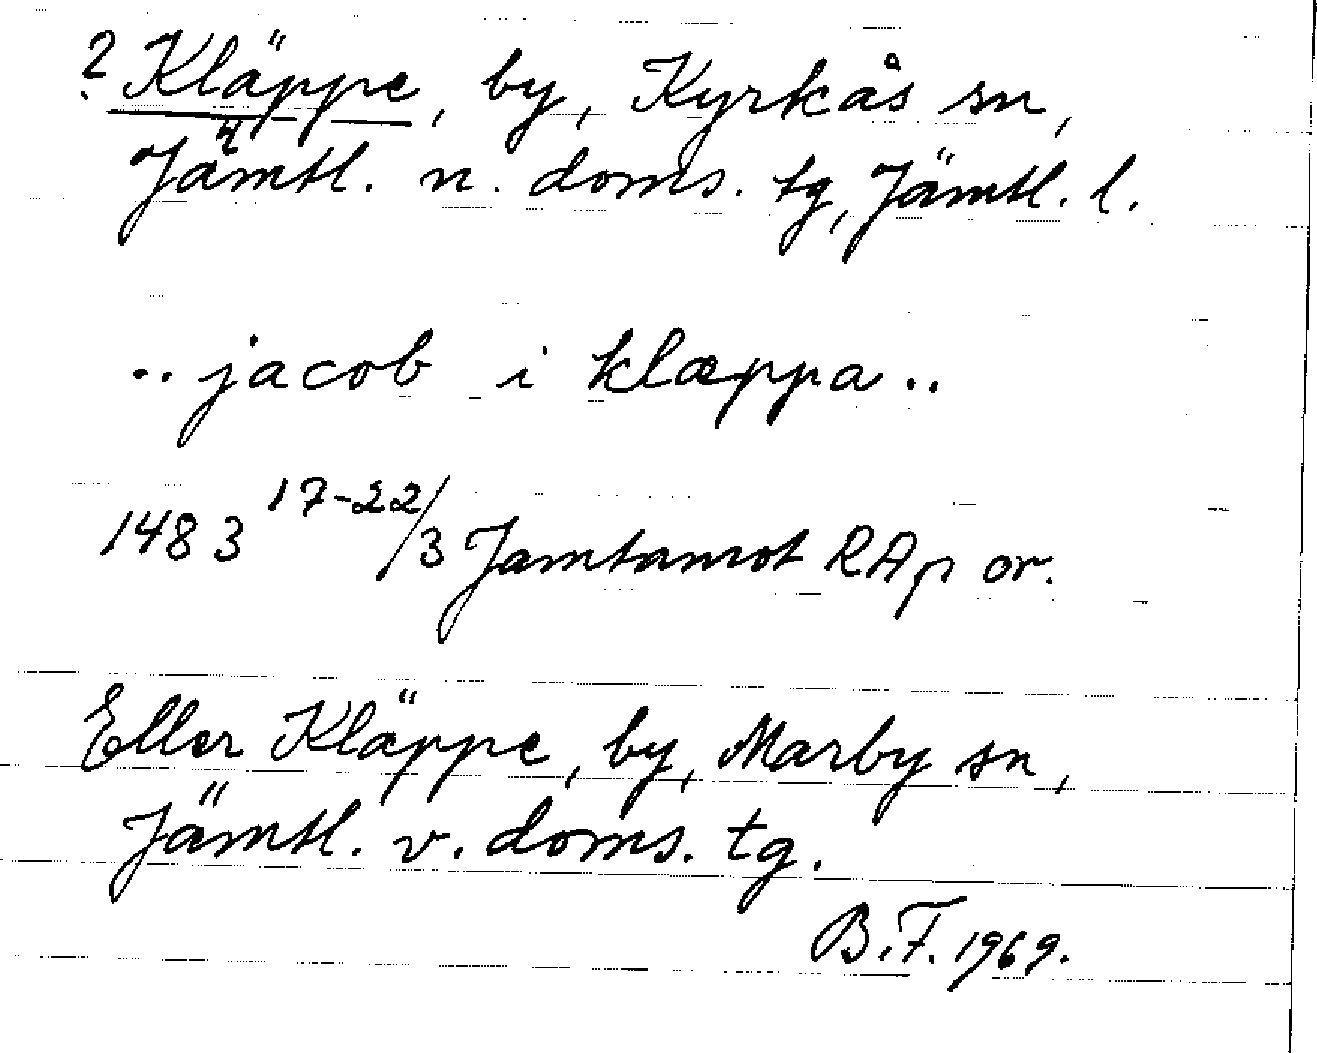 ? Kläppe, by, Kyrkås sn,
Jämtl. n. doms. tg, Jämtl. l.
.. jacob i klæppa ..
1483 17-22/3 Jamtamot RAp or.
Eller Kläppe, by, Marby sn,
Jämtl. v. doms. tg.
B.F. 1969.